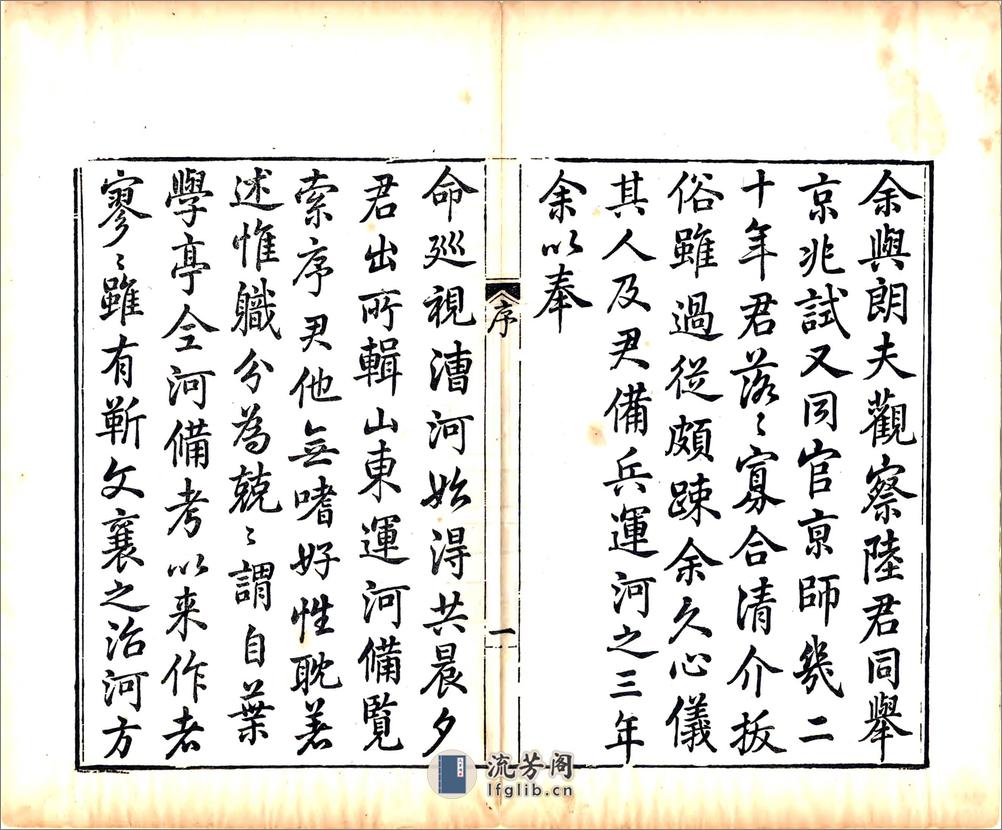 余與朗夫觀察陸君同舉
京兆試又同官京師幾二
十年君落〻寡合清介扳
俗雖過從頗踈余久心儀
其人及君備兵運河之三年
余以奉
序
一
命廵視漕河始淂共晨夕
君出所輯山東運河備覧
索序君他無嗜好性耽著
述惟職分為兢〻謂自葉
學亭全河備考以来作者
寥〻雖有靳文襄之治河方
流芳阁
lfglib.cn